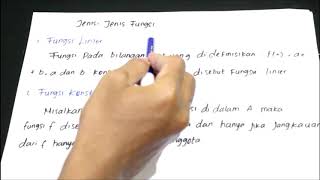 Jenis-Jenis Fungsi
Fungsi Linier
Fungsi Pada bilangan yang di definisikan f(x) = ax
+ b, a dan b kons disebut Fungsi linier
Fungsi Kons
Misalkan si di dalam A maka
fungsi f dise dan hanya jika jangkauan
dari f hanya nggota